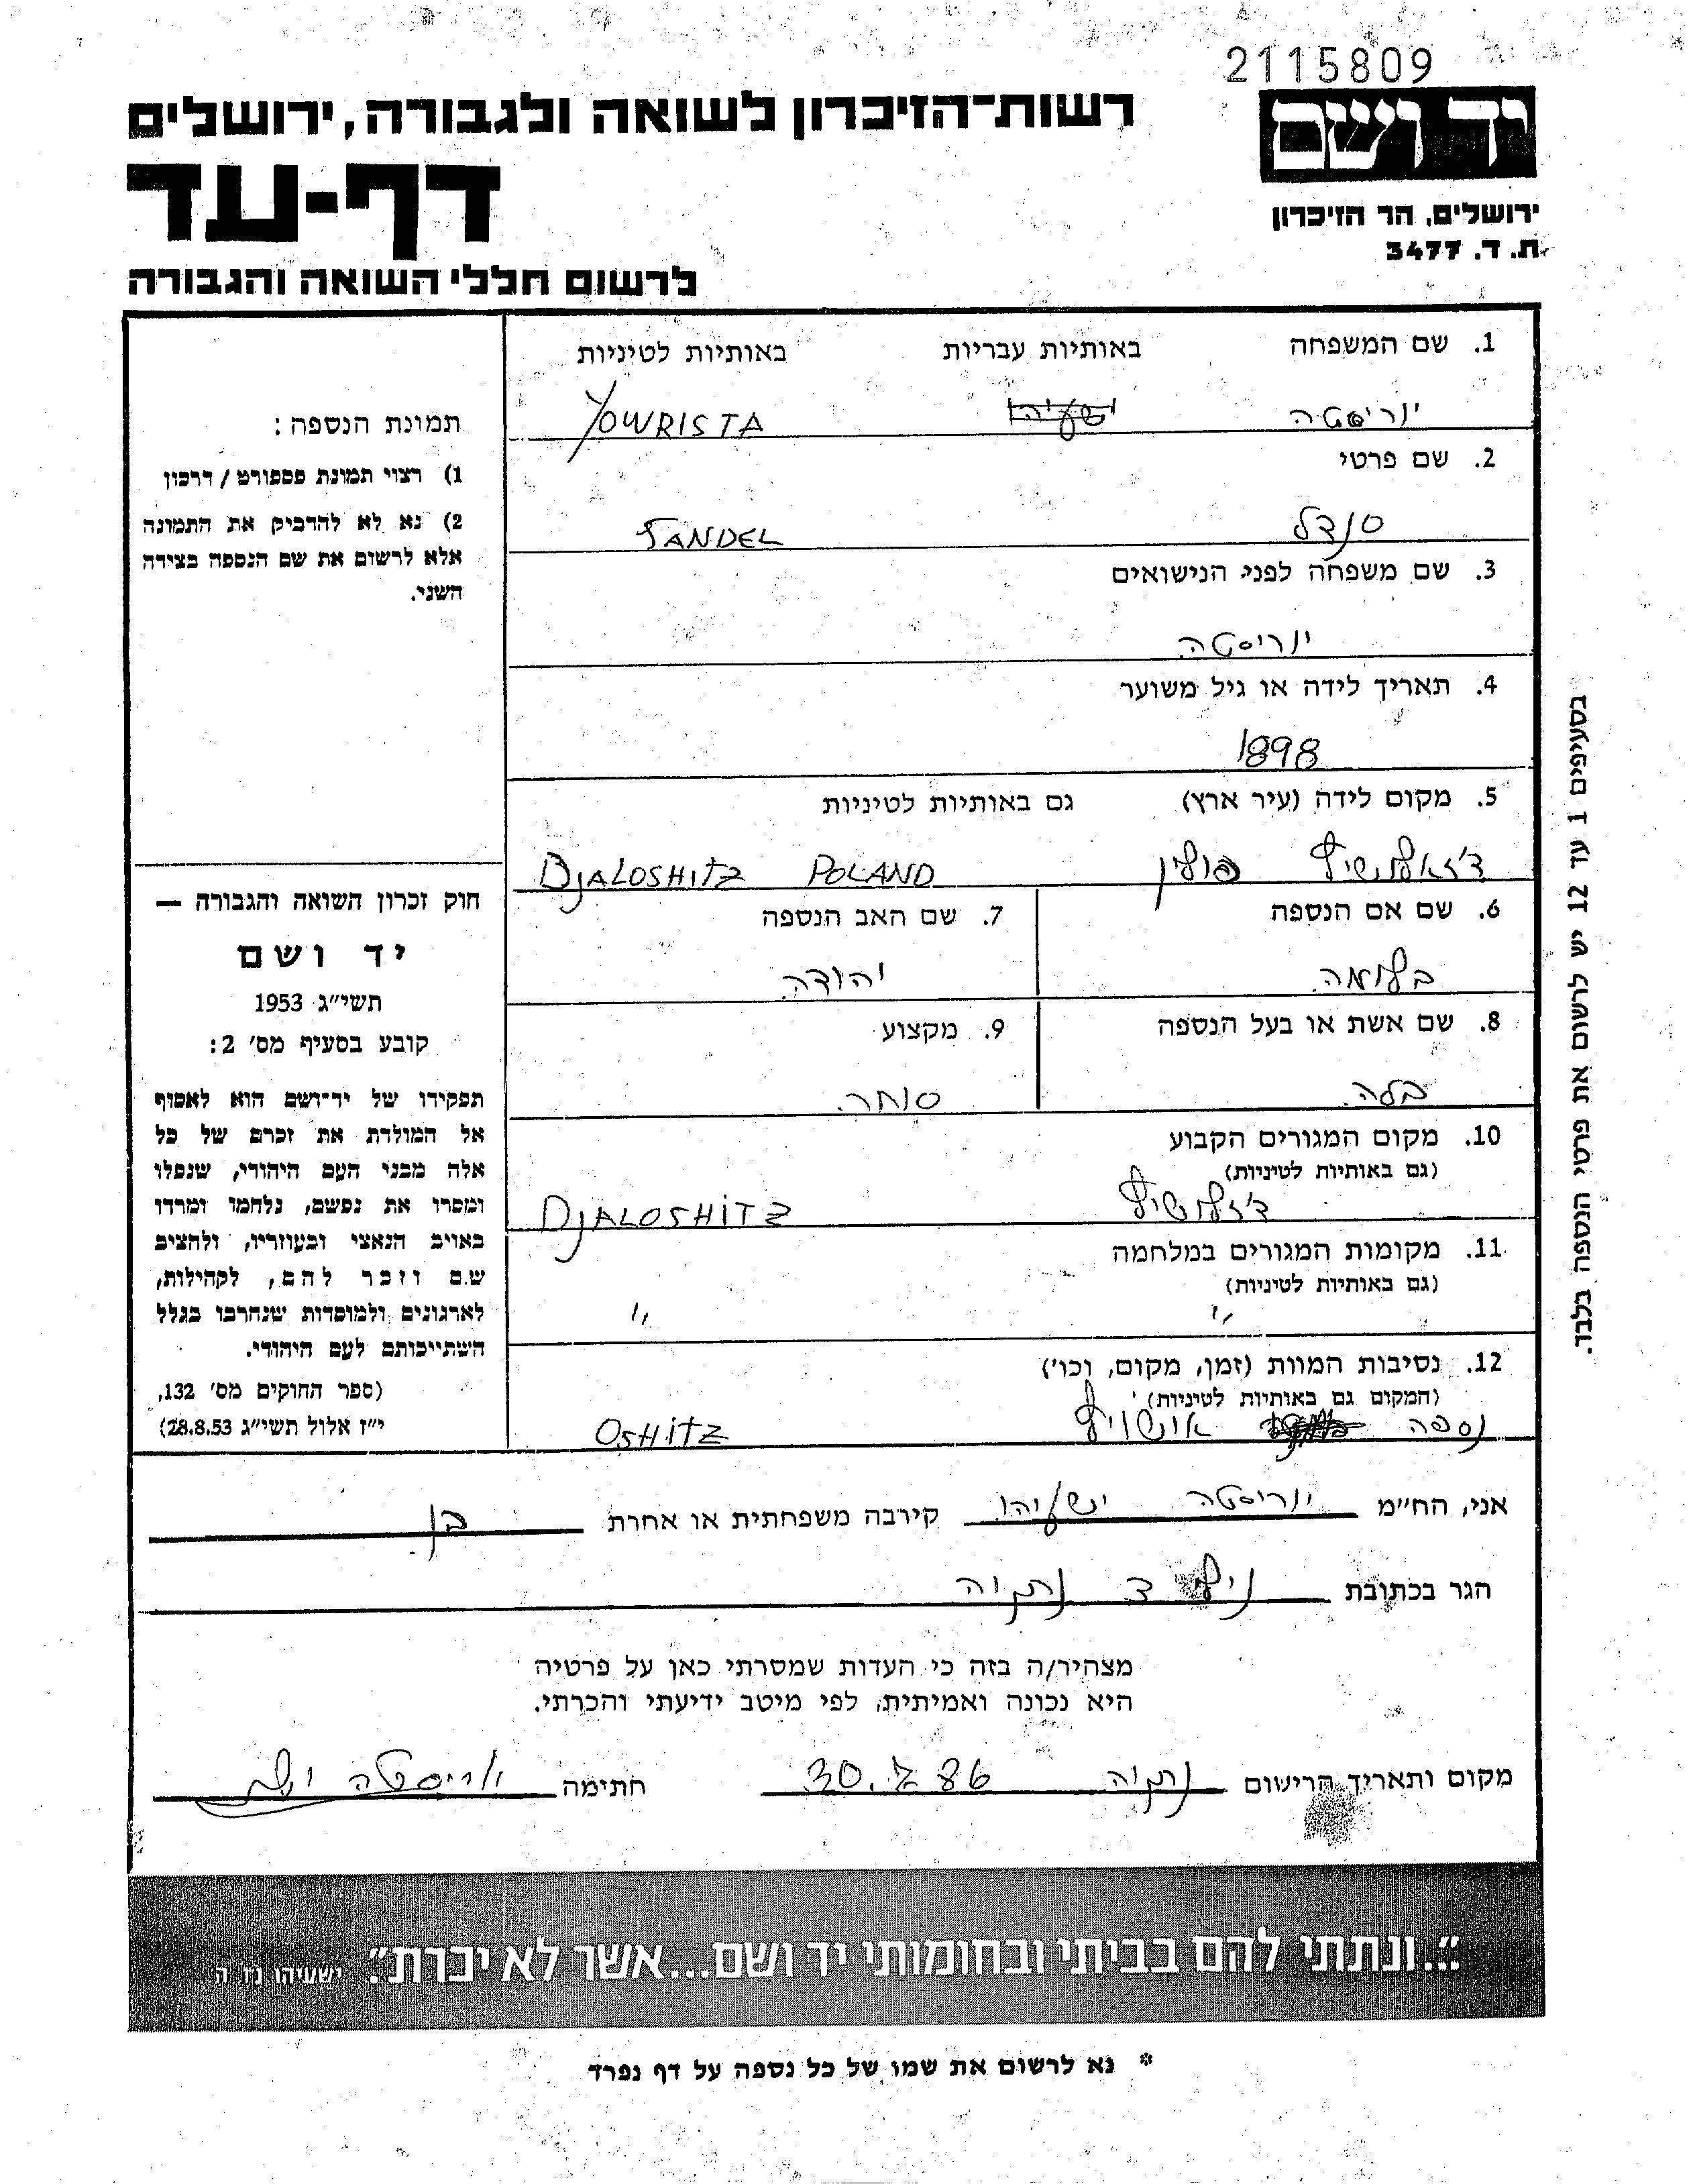 2115809
רשות־הזיכרון לשואה ולגבורה, ירושלים
יד ושם
דף-עד
ירושלים, הר הזיכרון
ת. ד. 3477
לרשום חללי השואה והגבורה
1. שם המשפחה באותיות עבריות באותיות לטיניות
יוריסטה YOWRISTA
2. שם פרטי
סנדל SANDEL
3. שם משפחה לפני הנישואים
יוריסטה
4. תאריך לידה או גיל משוער
1898
5. מקום לידה (עיר ארץ) גם באותיות לטיניות
ד'זאלושיץ פולין DJALOSHITZ POLAND
6. שם אם הנספה 7. שם האב הנספה
בלומה יהודה
8. שם אשת או בעל הנספה 9. מקצוע
בלה סוחר
10. מקום המגורים הקבוע
(גם באותיות לטיניות)
ד'זלושיץ DJALOSHITZ
11. מקומות המגורים במלחמה
(גם באותיות לטיניות)
" "
12. נסיבות המוות (זמן, מקום, וכו')
(המקום גם באותיות לטיניות)
נספה אושויץ OSHITZ
תמונת הנספה:
1) רצוי תמונת פספורט / דרכון
2) נא לא להדביק את התמונה
אלא לרשום את שם הנספה בצידה
השני.
חוק זכרון השואה והגבורה —
יד ושם
תשי"ג 1953
קובע בסעיף מס' 2:
תפקידו של יד־ושם הוא לאסוף
אל המולדת את זכרם של כל
אלה מבני העם היהודי, שנפלו
ומסרו את נפשם, נלחמו ומרדו
באויב הנאצי ובעוזריו, ולהציב
שם וזכר להם, לקהילות,
לארגונים ולמוסדות שנחרבו בגלל
השתייכותם לעם היהודי.
(ספר החוקים מס' 132,
י"ז אלול תשי"ג 28.8.53)
בסעיפים 1 עד 12 יש לרשום את פרטי הנספה בלבד.
אני, הח"מ יוריסטה ישעיהו קירבה משפחתית או אחרת בן
הגר בכתובת נתניה
מצהיר/ה בזה כי העדות שמסרתי כאן על פרטיה
היא נכונה ואמיתית, לפי מיטב ידיעתי והכרתי.
מקום ותאריך הרישום נתניה 30.7.86 חתימה יוריסטה
"...ונתתי להם בביתי ובחומותי יד ושם...אשר לא יכרת". ישעיהו נו ה
* נא לרשום את שמו של כל נספה על דף נפרד